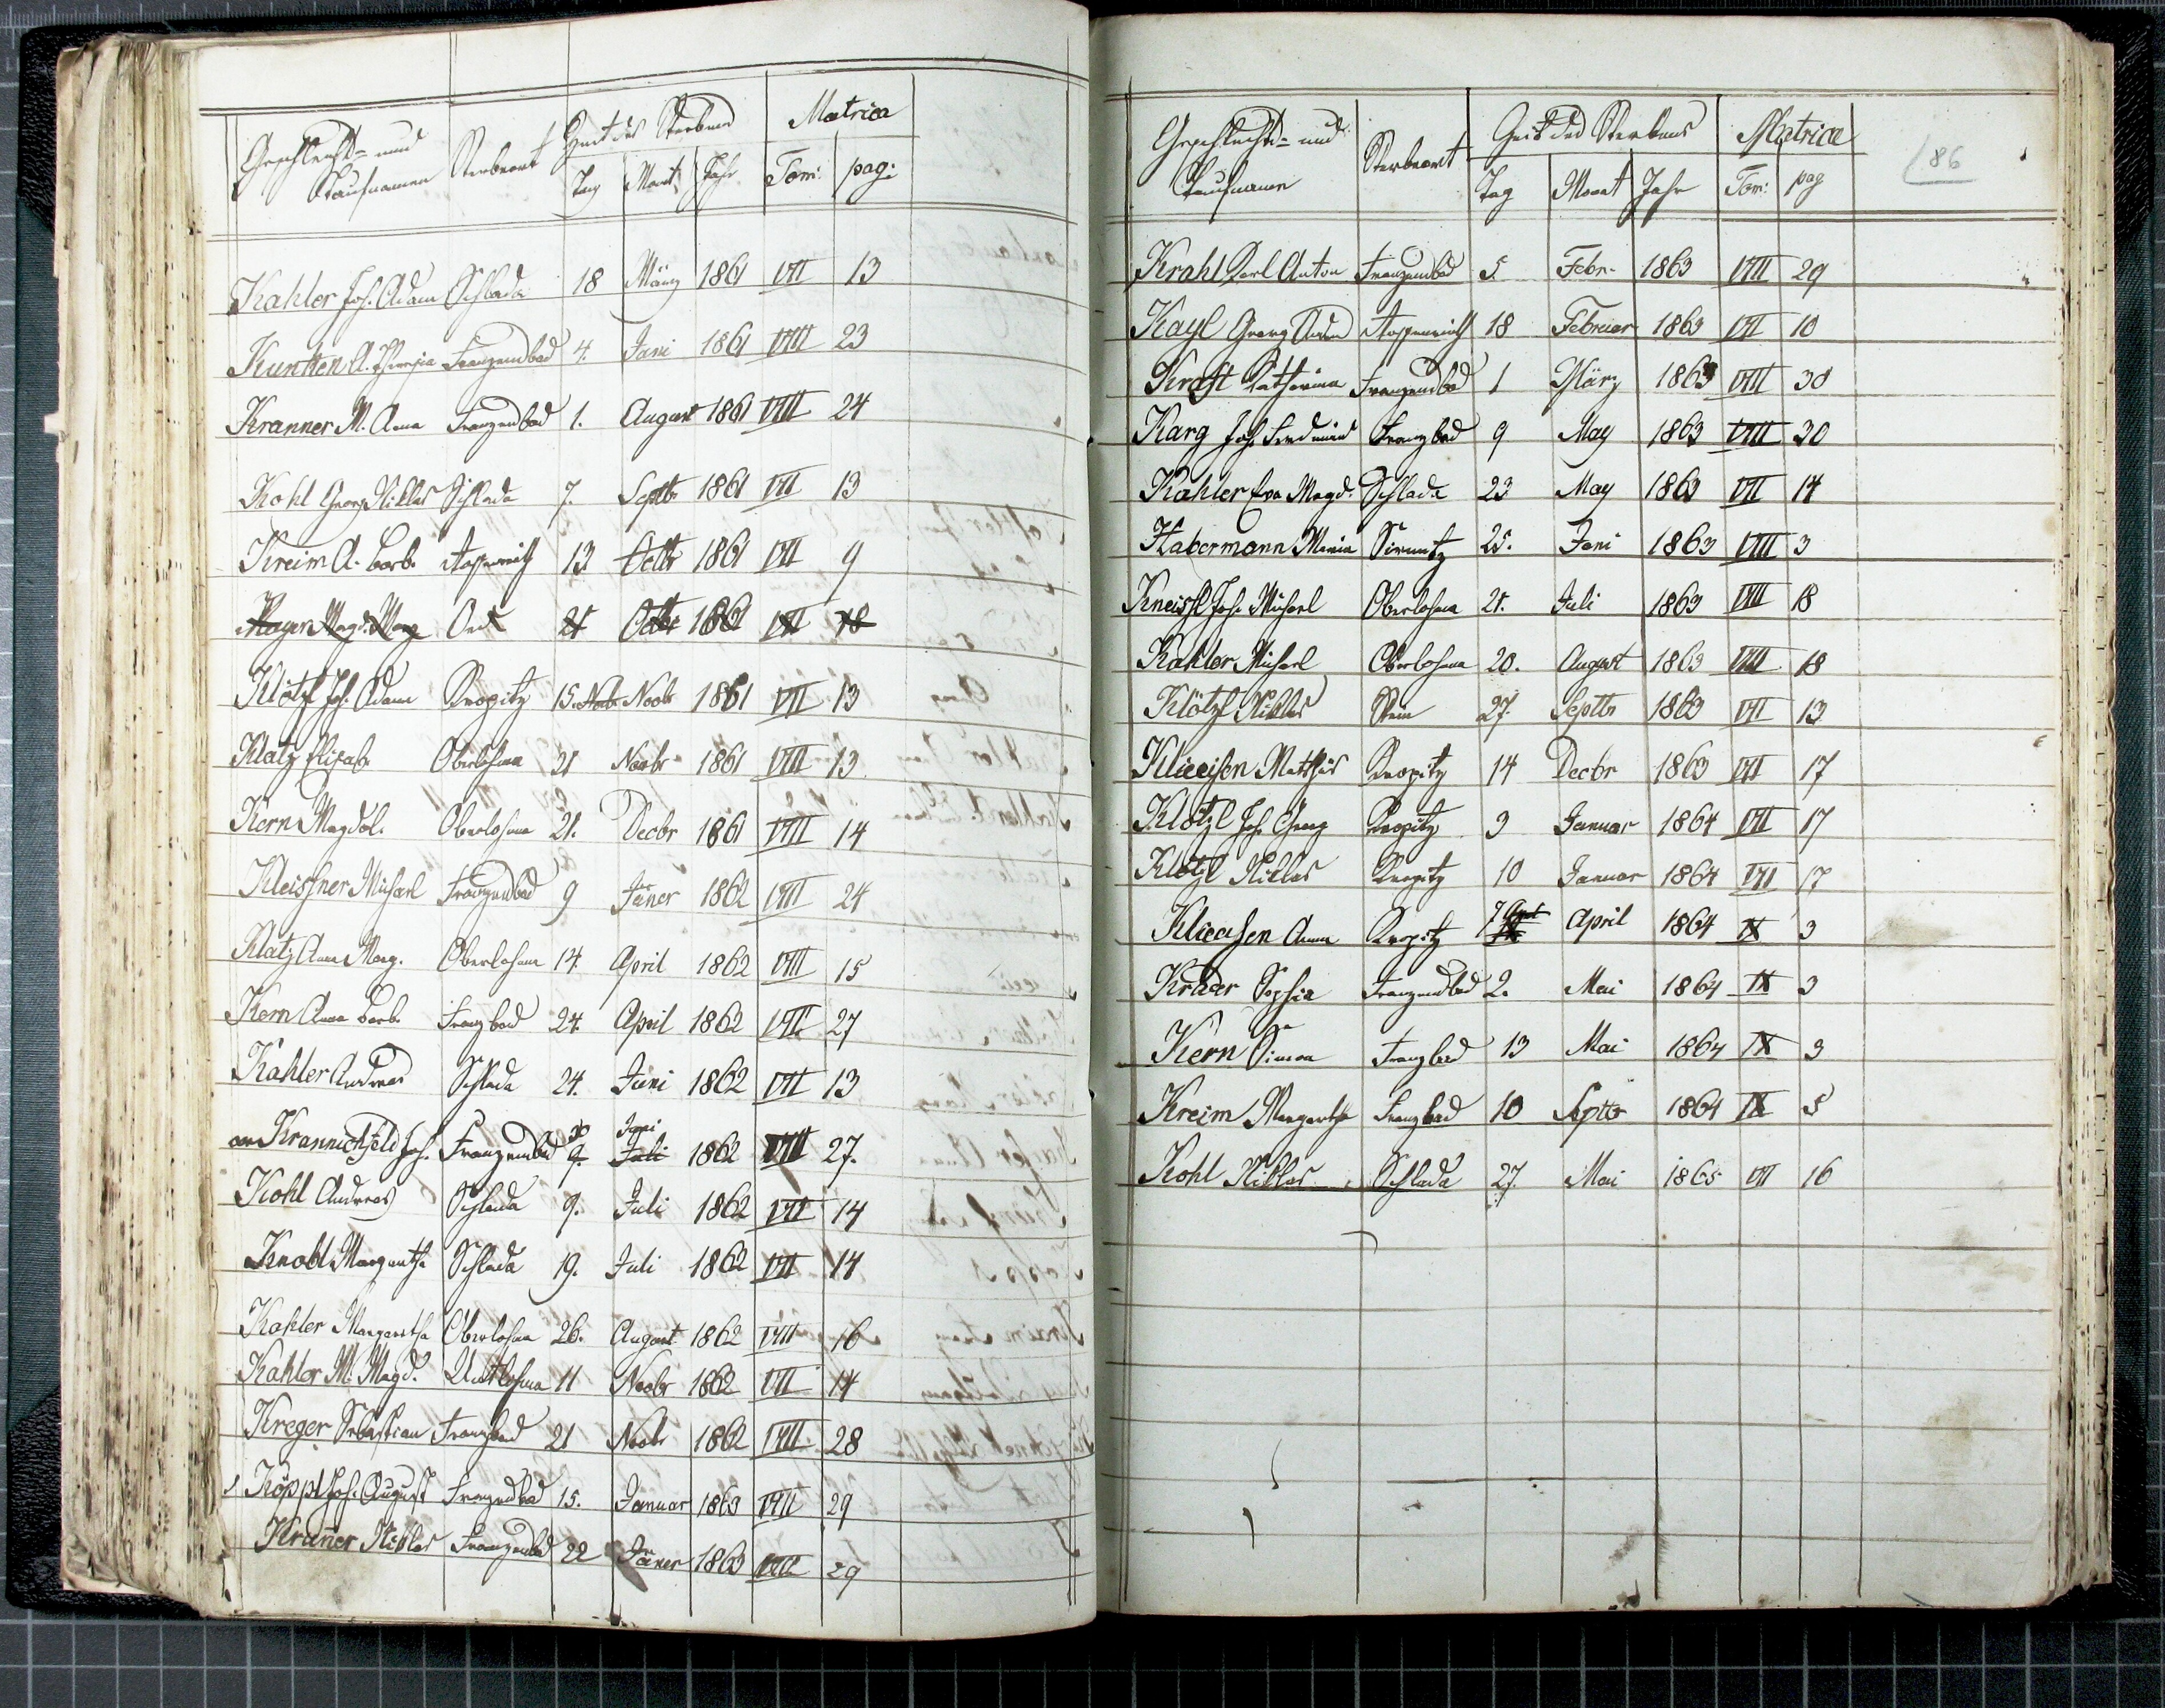 Geschlechts- und Taufnamen Sterbeort Zeit des Sterbens Matrica
Tag Monat Jahr Tom: pag:
Kahler Joh. Adam Schlada 18 März 1861 VII 13
Kuntten A. Theresia Franzensbad 4. Juni 1861 VIII 23
Kranner M. Anna Franzensbad 1. August 1861 VIII 24
Kohl Georg Niklas Schlada 7. Septbr 1861 VII 13
Kreim A. Barb. 13 Octbr 1861 VII 9
Mayer Magd. Marg Ort 21 Octbr 1861 VII 18
Klötzl Joh. Adam Tropitz 15. Novbr Novbr 1861 VII 13
Klatz Elisab. Oberlohma 21 Novbr 1861 VIII 13
Kern Magdal. Oberlohma 21. Decbr 1861 VIII 14
Kleissner Michael Franzensbad 9 Jäner 1862 VIII 24
Klatz Anna Marg. Oberlohma 14. April 1862 VIII 15
Kern Anna Barb. Franzbad 24. April 1862 VIII 27
Kahler Andreas Schlada 24. Juni 1862 VII 13
von Krannichfeld Joh. Franzensbad 30 9. Juni Juli 1862 VIII 27.
Kohl Andreas Schlada 9. Juli 1862 VII 14
Knobl Margaretha Schlada 19. Juli 1862 VII 14
Kahler Margaretha Oberlohma 26. August 1862 VIII 16
Kahler M. Magd. Untlohma 11 Novbr 1862 VII 14
Kreger Sebastian Franzbad 21 Novbr 1862 VIII 28
Köppl Joh. August Franzensbad 15. Januar 1863 VIII 29
Kran̄er Niklas Franzensbad 22 Jäner 1863 VIII 29
Geschlechts- und Taufnamen Sterbeort Zeit des Sterbens Matrica 86
Tag Monat Jahr Tom: pag
Krahl Karl Anton Franzensbad 5. Febr. 1863 VIII 29
Kayl Georg Adam 18 Februar 1863 VII 10
Kraft Katharina Franzensbad 1 März 1863 VIII 30
Karg Joh. Ferdinand Franzbad 9 May 1863 VIII 30
Kahler Eva Magd. Schlada 23 May 1863 VII 14
Habermann Maria Sirmitz 25. Juni 1863 VIII 3
Kneissl Joh. Michael Oberlohma 21. Juli 1863 VIII 18
Kahler Michael Oberlohma 20. August 1863 VIII 18
Klötzl Niklas Stein 27. Septbr 1863 VII 13
Klieeisen Mathias Tropitz 14 Decbr 1863 VII 17
Klötzl Joh. Georg Tropitz 3 Januar 1864 VII 17
Klötzl Niklas Tropitz 10 Januar 1864 VII 17
Klieeisen Anna Tropitz 7 April April 1864 IX 3
Sophia Franzensbad 2. Mai 1864 IX 3
Kern Simon Franzbad 13 Mai 1864 IX 3
Kreim Margaretha Franzbad 10 Septbr 1864 IX 5
Kohl Niklas Schlada 27. Mai 1865 VII 16